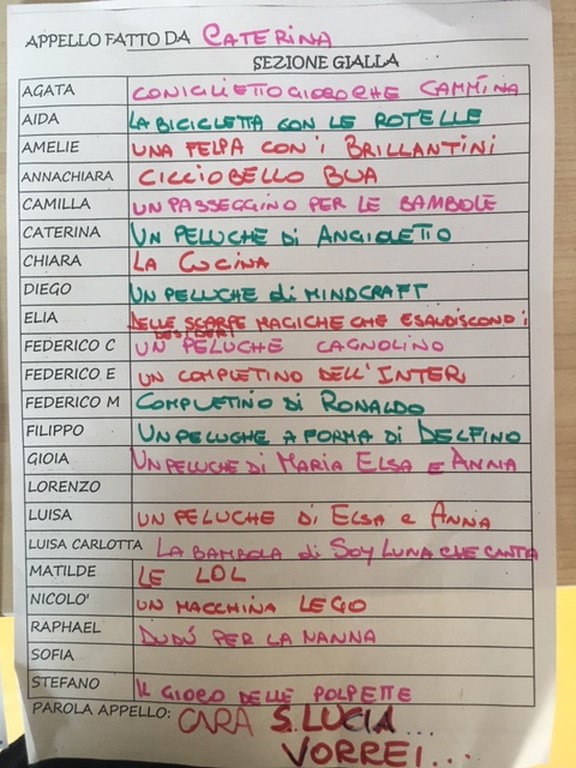 APPELLO FATTO DA CATERINA
SEZIONE GIALLA
AGATA CONIGLIETTO GIOCO CHE CAMMINA
AIDA LA BICICLETTA CON LE ROTELLE
AMELIE UNA FELPA CON i BRILLANTINI
ANNACHIARA CICCIOBELLO BUA
CAMILLA UN PASSEGGINO PER LE BAMBOLE
CATERINA UN PELUCHE Di ANGIOLETTO
CHIARA LA CUCINA
DIEGO UN PELUCHE di MINDCRAFT
ELIA DELLE SCARPE MAGICHE CHE ESAUDISCONO i
DESIDERI
FEDERICO C UN PELUCHE CAGNOLINO
FEDERICO E UN COMPLETINO DELL'INTER
FEDERICO M COMPLETINO Di RONALDO
FILIPPO UN PELUCHE A FORMA di DELFINO
GIOIA UN PELUCHE Di MARIA ELSA E ANNA
LORENZO
LUISA UN PELUCHE Di ELSA e ANNA
LUISA CARLOTTA LA BAMBOLA di SOY LUNA CHE CANTA
MATILDE LE LOL
NICOLO' UN MACCHINA LEGO
RAPHAEL DUDÚ PER LA NANNA
SOFIA
STEFANO IL GIOCO DELLE POLPETTE
PAROLA APPELLO: CARA S. LUCIA...
VORREI...